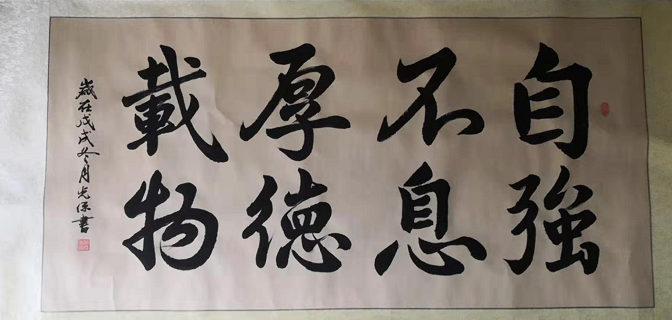 自強
不息
厚德
載物
歲在戊戌冬月光保書